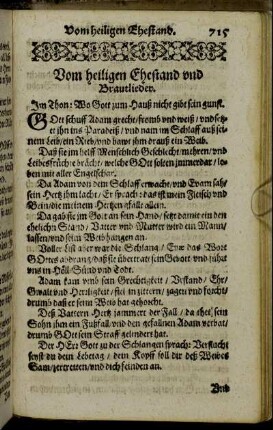 Vom heiligen Ehestand. 715
Vom heiligen Ehestand vnd
Brautlieder.
Im Thon: Wo Gott zum Hauß nicht gibt sein gunst.
GOtt schuff Adam gerecht/ fromb vnd weiß/ vnd setz-
et ihn ins Paradeiß/ vnd nam im Schlaff auß sei-
nem Leib/ ein Rieb/ vnd bawt ihm drauß ein Weib.
Daß sie jm helff Menschlich Geschlecht mehren/ vnd
Leibesfrücht brächt/ welche GOtt solten jmmerdar lo-
ben mit aller Engelschar.
Da Adam von dem Schlaff erwacht/ vnd Evam sah/
sein Hertz jhm lacht/ Er sprach: das ist mein Fleisch vnd
Bein/ die meinem Hertzen gfällt allein.
Da gab sie jm Gott an sein Hand/ setzt damit ein den
ehelichn Stand/ Vatter vnd Mutter wird ein Mann/
lassen/ vnd seim Weib hangen an.
Voller list aber war die Schlang/ Eva das Wort
GOttes abdrang/ daß sie übertrat sein Gebott/ vnd führt
vns in Höll/ Sünd vnd Todt.
Adam kam vmb sein Grechtigkeit/ Vrstand/ Ehr/
Gwalt vnd Herrligkeit/ fiel in zittern/ zagen vnd forcht/
drumb daß er seim Weib hat gehorcht.
Deß Vattern Hertz jammert der Fall/ da thet sein
Sohn jhm ein Fußfall/ vnd den gefallnen Adam verbat/
drumb GOtt sein Straff gelindert hat.
Der HErr Gott zu der Schlangen sprach: Verflucht
seyst du dein Lebetag/ dein Kopff soll dir deß Weibes
Sam/ zertretten/ vnd dich feinden an.
Vnd